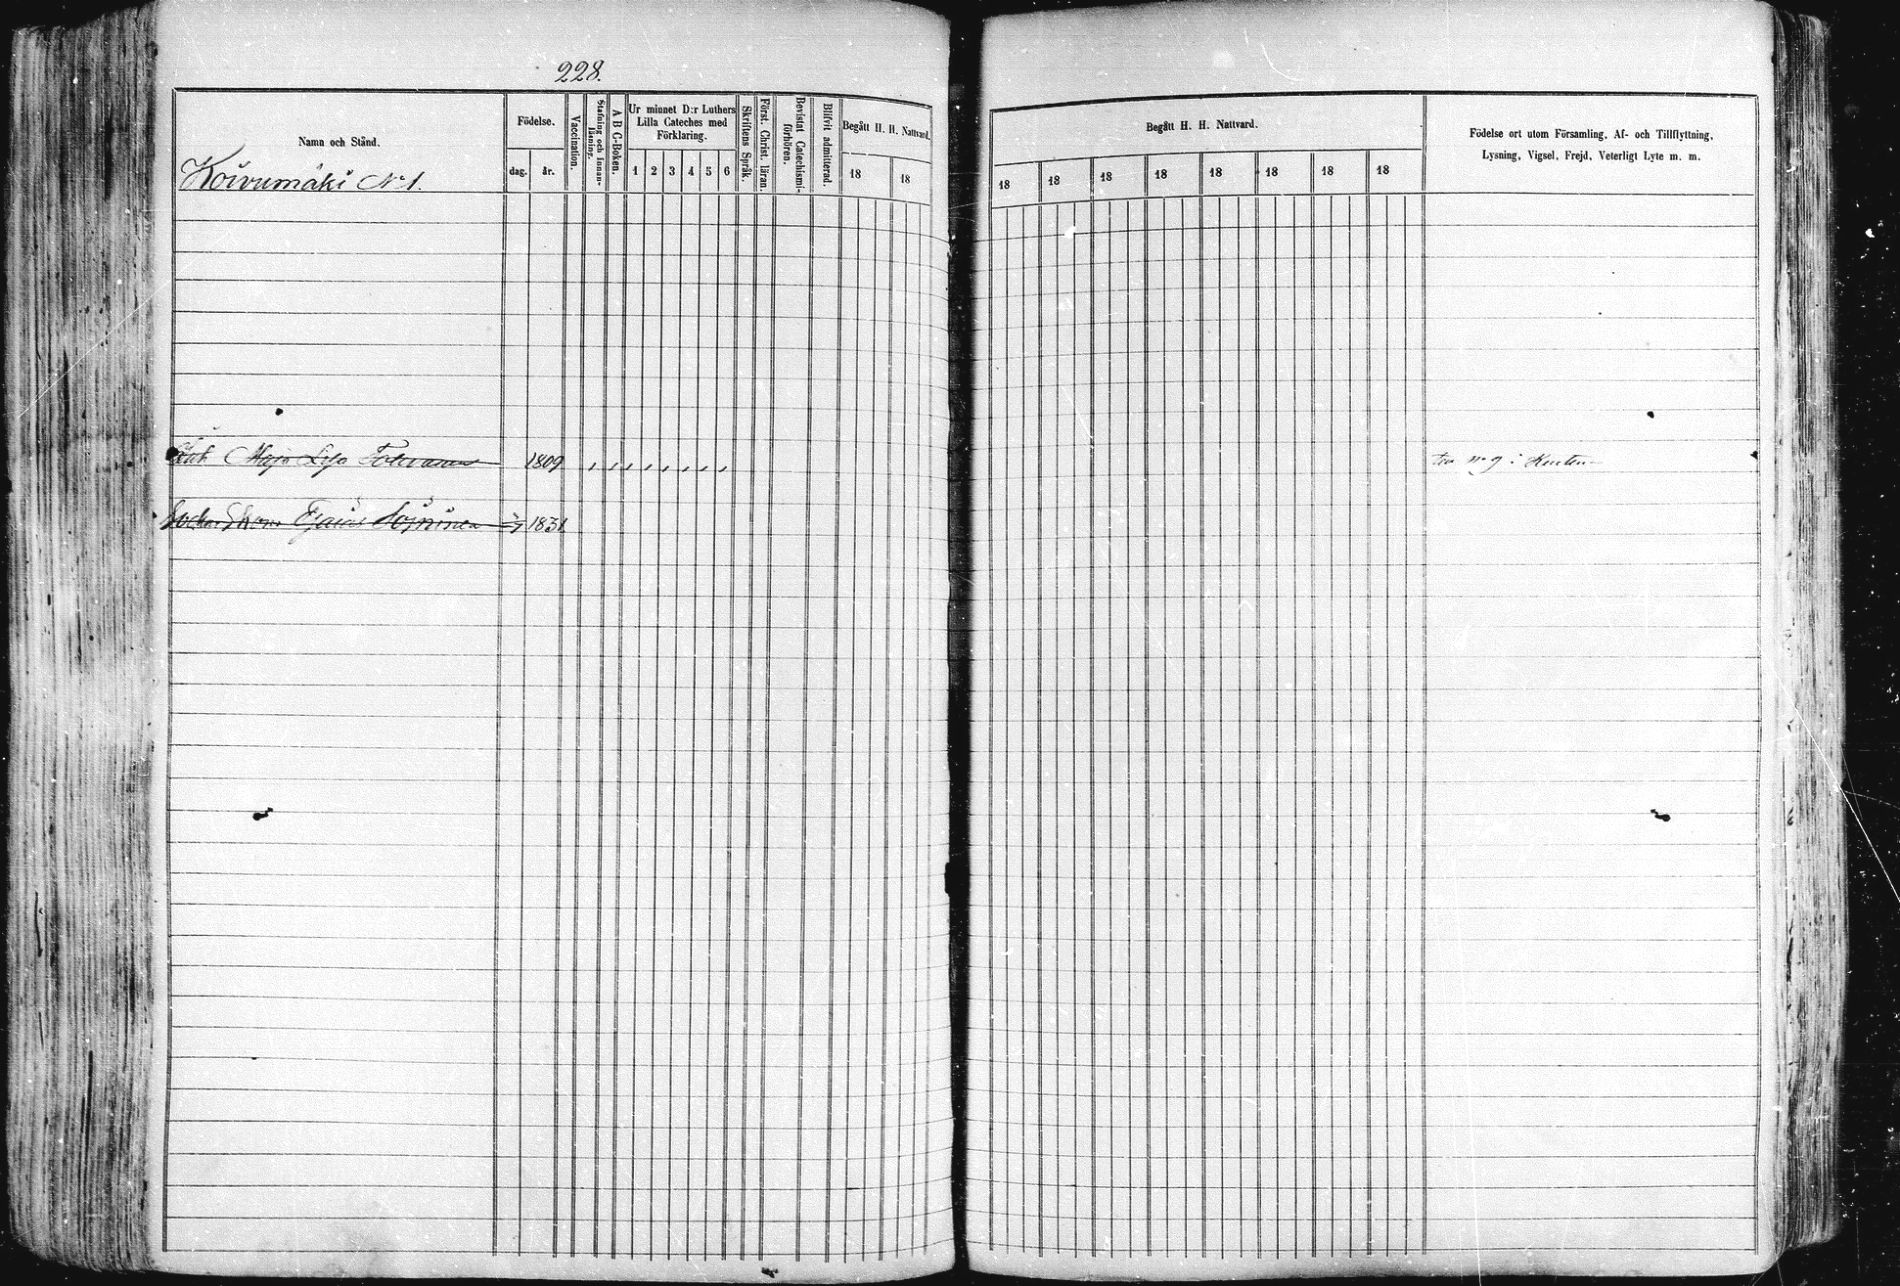 228.
Namn och Stånd.
Koivumäki N:o 1.
Födelse.
dag.
år.
Vaccination.
Stafning och Innan-läsning.
A B C-Boken.
Ur minnet D:r Luthers
Lilla Cateches med
Förklaring.
1 2 3 4 5 6
Skriftens Språk.
Först. Christ. läran.
Bevistat Catechismi-förhören.
Blifvit admitterad.
Begått H. H. Nattvard.
18 18
Begått H. H. Nattvard.
18 18 18 18 18 18 18 18
Födelse ort utom Församling, Af- och Tillflyttning,
Lysning, Vigsel, Frejd, Veterligt Lyte m. m.
Maja Lisa Tolvanen 1809
Esaias 1831